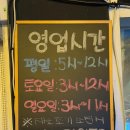 영업시간
평일:5시~12시
토요일:3시~12시
일요일:3시~11시